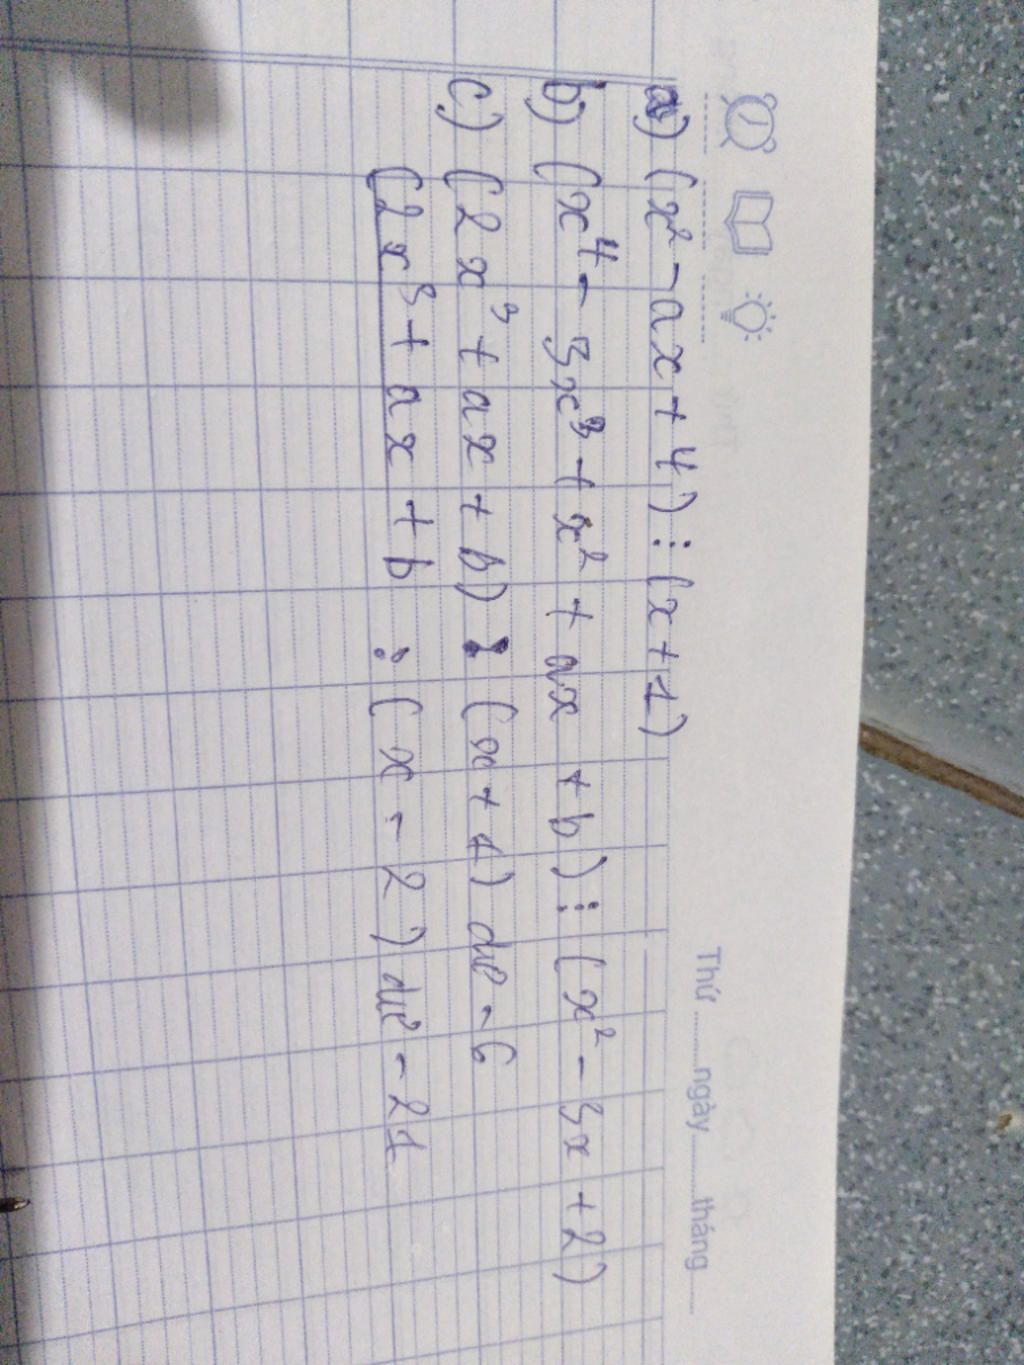 Thứ ........ngày..........tháng..........
a) (x² - ax + 4) ⋮ (x + 1)
b) (x⁴ - 3x³ + x² + ax + b) ⋮ (x² - 3x + 2)
c) (2x³ + ax + b) : (x + 1) dư - 6
(2x³ + ax + b : (x - 2) dư - 21